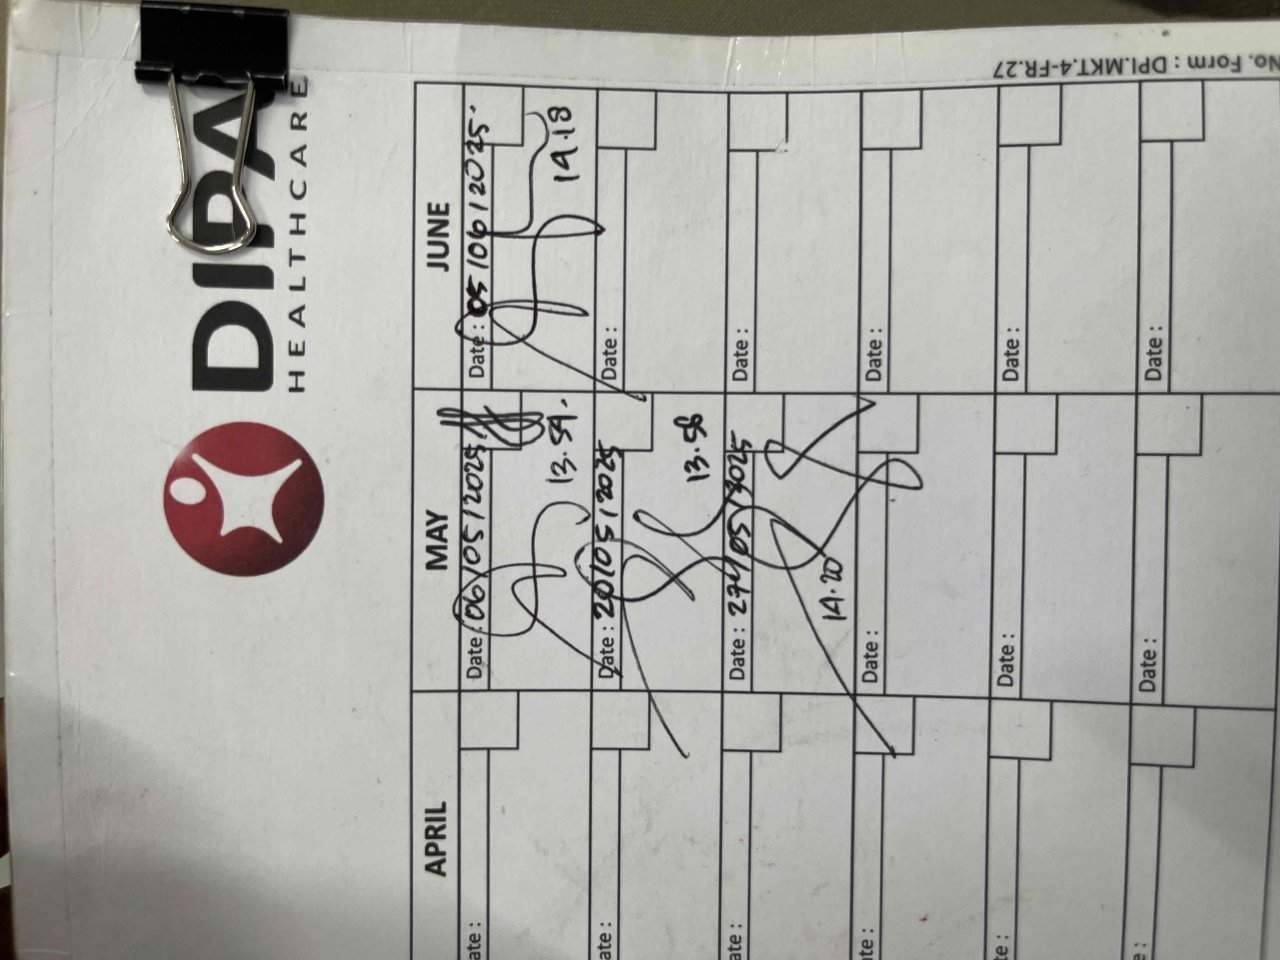 No. Form : DPI.MKT.4-FR.27
DIPA
HEALTHCARE
APRIL
MAY
JUNE
ate :
Date : 06/05/2025
13.59.
Date : 05/06/2025.
14.18
ate :
Date : 20/05/2025
13.58
Date :
ate :
Date : 27/05/2025
14.20
Date :
ate :
Date :
Date :
te :
Date :
Date :
e :
Date :
Date :